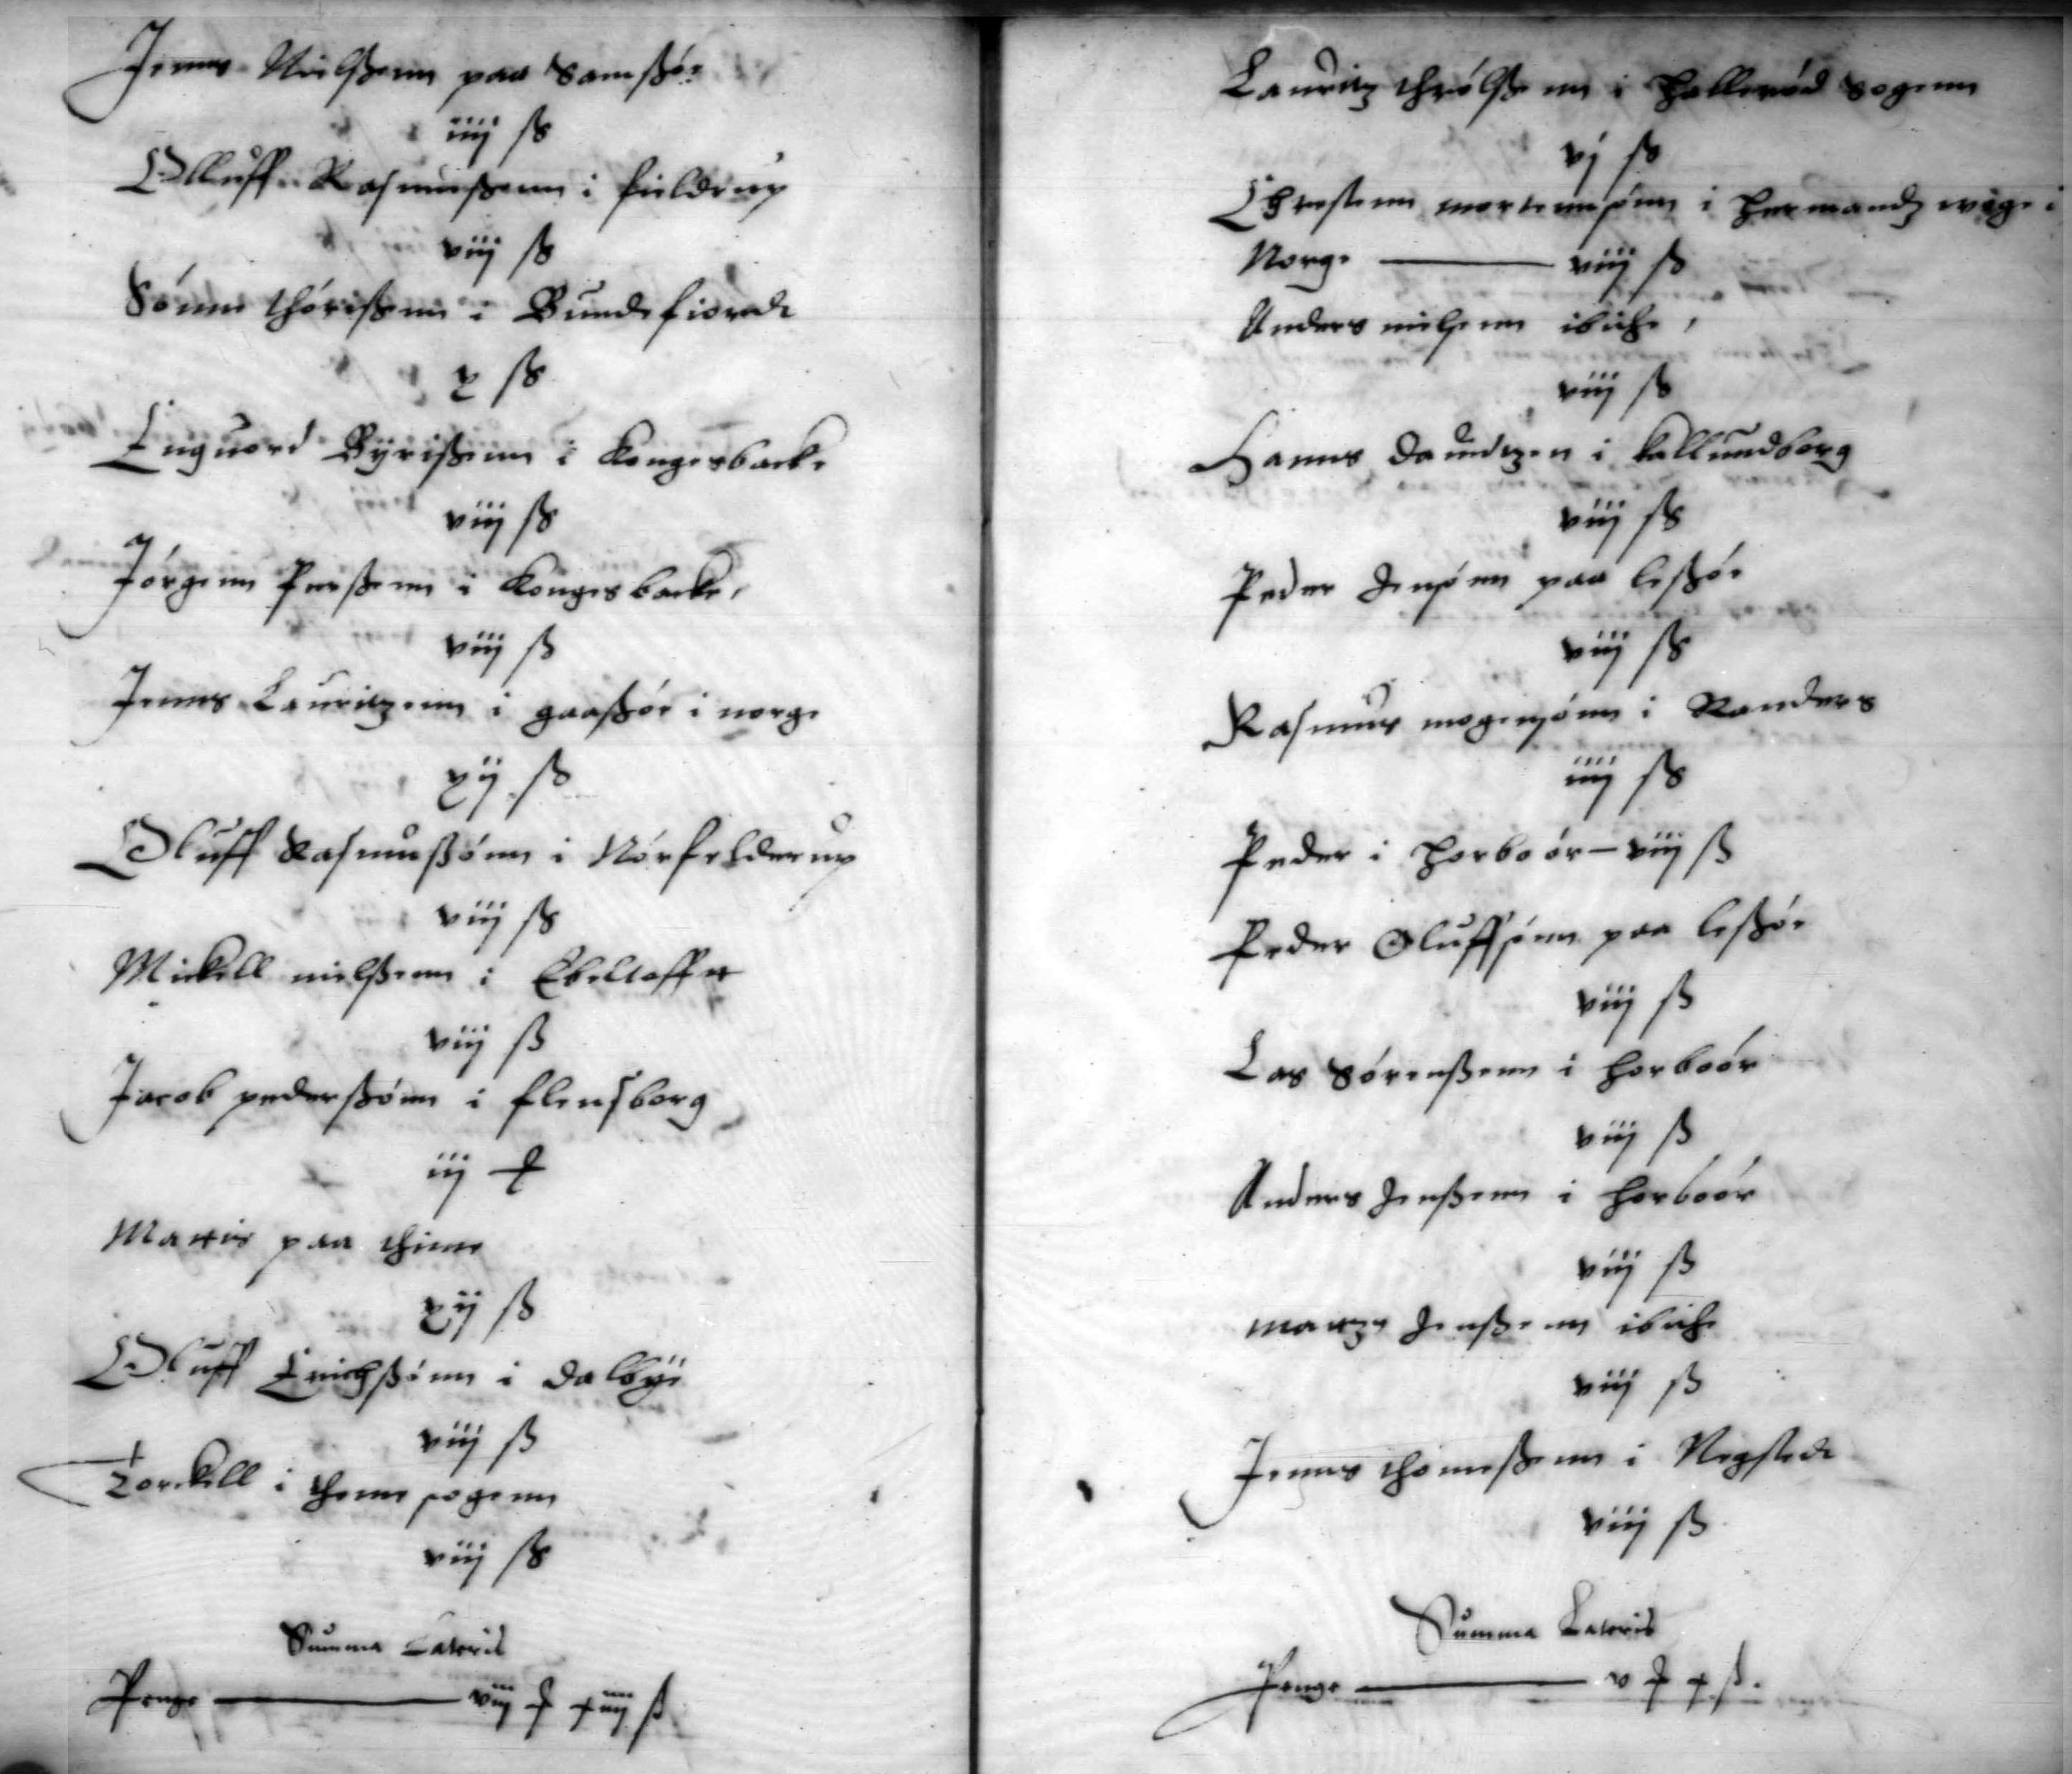 Jenns Nielßenn paa Samßøe
iiij ß
Olluff Rasmußenn i fieldrup
viij ß
Sønne thørißenn i Bundefiorde
x ß
Inguord Byrißenn i Kongesbacke
viij ß
Jørgenn Perßenn i Kongesbacke
viij ß
Jenns Lauritzenn i gaaßøe i norge
xij ß
Oluff Rasmußønn i Nørfelderup
viij ß
Mickell nielßenn i Ebeltofft
viij ß
Jacob pederßønn i flensborg
iij ₰
Mattis paa thinn
xij ß
Oluff Erichßønn i dalbye
viij ß
Torckell i themme sogenn
viij ß
Summa Lateris
Penge — viij ₰ xiiij ß
Lauritz thrølßenn i Hallerød sogenn
vj ß
Chrestenn mortennsønn i Hermandz woge i
Norge — viij ß
Anders nielsenn ibidem
viij ß
Hanns dauidtzen i kallundborg
viij ß
Peder Jensønn paa leßøe
viij ß
Rasmus mogensønn i Randers
iiij ß
Peder i Horboør — viij ß
Peder Oluffsønn paa leßøe
viij ß
Las Sørenßenn i horboør
viij ß
Anders Jenßenn i horboør
viij ß
mattz Jenßenn ibidem
viij ß
Jenns thomeßenn i Negstede
viij ß
Summa Lateris
Penge — v ₰ x ß.